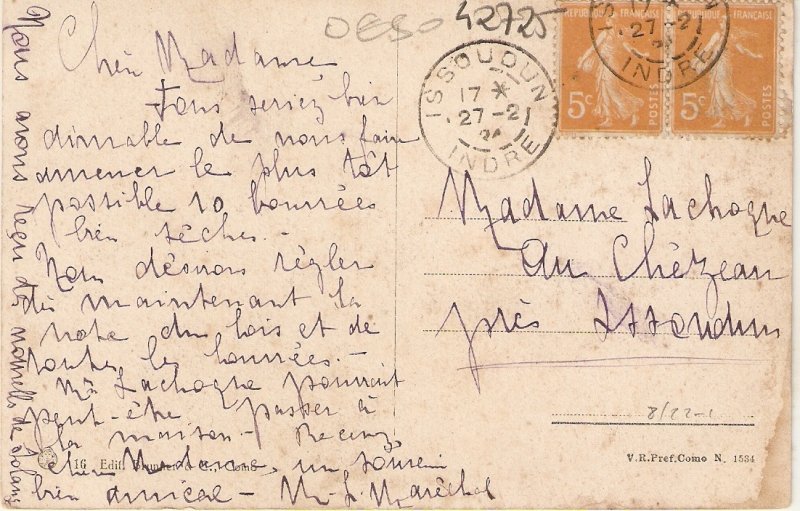 OESO 42725
Chère Madame
Vous seriez bien
aimable de nous faire
amener le plus tôt
possible 10 bourrées
bien sèches. -
Nous désirons régler
dès maintenant la
note du bois et de
toutes les bourrées. -
Mr Lachogne pourrait
peut-être passer à
la maison - Recevez
chère Madame, un souvenir
bien amical - M. L. Maréchal
Nous avons reçu de nouvelles de Solange
ISSOUDUN
17 *
27-2
INDRE
RÉPUBLIQUE FRANÇAISE
5c
POSTES
RÉPUBLIQUE FRANÇAISE
5c
POSTES
17
27-2
INDRE
Madame Lachogne
Au Chézeau
près Issoudun
8/22-1
16 Edit. Brunner & C., Como
V.R.Pref.Como N. 1534